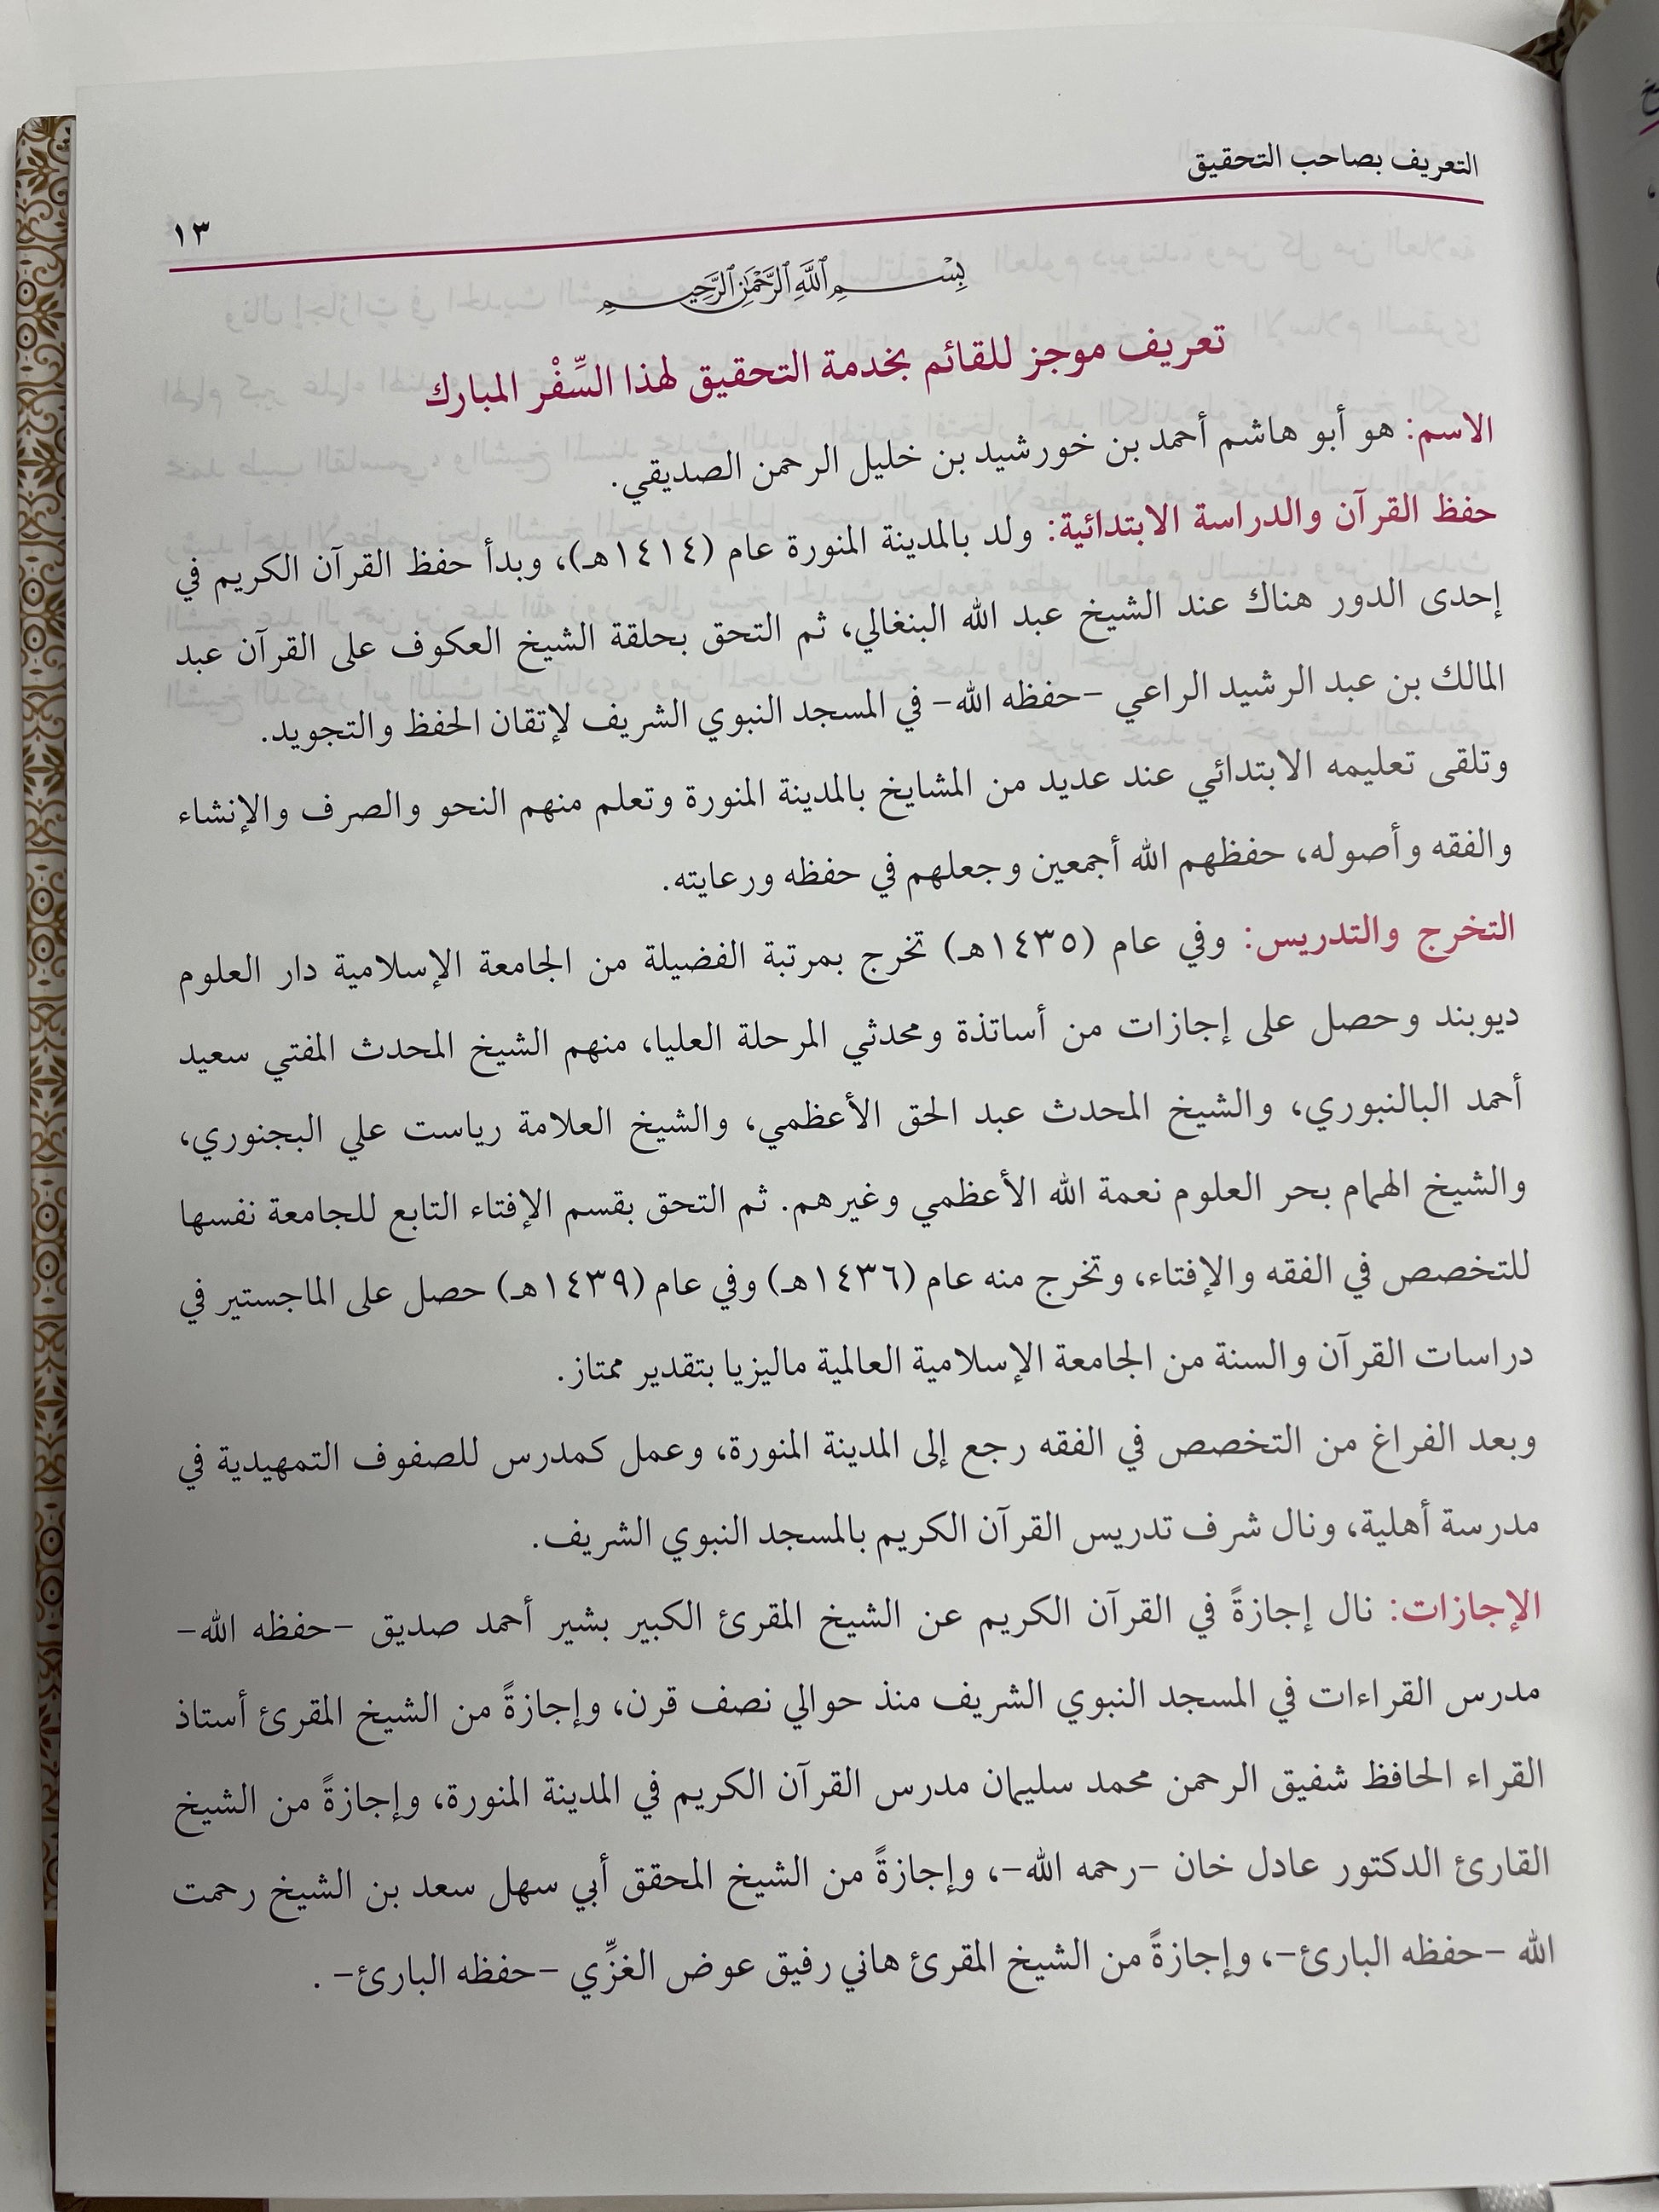 التعريف بصاحب التحقيق
١٣
بِسْمِ اللَّهِ الرَّحْمَٰنِ الرَّحِيمِ
تعريف موجز للقائم بخدمة التحقيق لهذا السِّفْر المبارك
الاسم: هو أبو هاشم أحمد بن خورشيد بن خليل الرحمن الصديقي.
حفظ القرآن والدراسة الابتدائية: ولد بالمدينة المنورة عام (١٤١٤هـ)، وبدأ حفظ القرآن الكريم في
إحدى الدور هناك عند الشيخ عبد الله البنغالي، ثم التحق بحلقة الشيخ العكوف على القرآن عبد
المالك بن عبد الرشيد الراعي -حفظه الله- في المسجد النبوي الشريف لإتقان الحفظ والتجويد.
وتلقى تعليمه الابتدائي عند عديد من المشايخ بالمدينة المنورة وتعلم منهم النحو والصرف والإنشاء
والفقه وأصوله، حفظهم الله أجمعين وجعلهم في حفظه ورعايته.
التخرج والتدريس: وفي عام (١٤٣٥هـ) تخرج بمرتبة الفضيلة من الجامعة الإسلامية دار العلوم
ديوبند وحصل على إجازات من أساتذة ومحدثي المرحلة العليا، منهم الشيخ المحدث المفتي سعيد
أحمد البالنبوري، والشيخ المحدث عبد الحق الأعظمي، والشيخ العلامة رياست علي البجنوري،
والشيخ الهمام بحر العلوم نعمة الله الأعظمي وغيرهم. ثم التحق بقسم الإفتاء التابع للجامعة نفسها
للتخصص في الفقه والإفتاء، وتخرج منه عام (١٤٣٦هـ) وفي عام (١٤٣٩هـ) حصل على الماجستير في
دراسات القرآن والسنة من الجامعة الإسلامية العالمية ماليزيا بتقدير ممتاز.
وبعد الفراغ من التخصص في الفقه رجع إلى المدينة المنورة، وعمل كمدرس للصفوف التمهيدية في
مدرسة أهلية، ونال شرف تدريس القرآن الكريم بالمسجد النبوي الشريف.
الإجازات: نال إجازةً في القرآن الكريم عن الشيخ المقرئ الكبير بشير أحمد صديق -حفظه الله-
مدرس القراءات في المسجد النبوي الشريف منذ حوالي نصف قرن، وإجازةً من الشيخ المقرئ أستاذ
القراء الحافظ شفيق الرحمن محمد سليمان مدرس القرآن الكريم في المدينة المنورة، وإجازةً من الشيخ
القارئ الدكتور عادل خان -رحمه الله-، وإجازةً من الشيخ المحقق أبي سهل سعد بن الشيخ رحمت
الله -حفظه البارئ-، وإجازةً من الشيخ المقرئ هاني رفيق عوض الغزِّي -حفظه البارئ- .